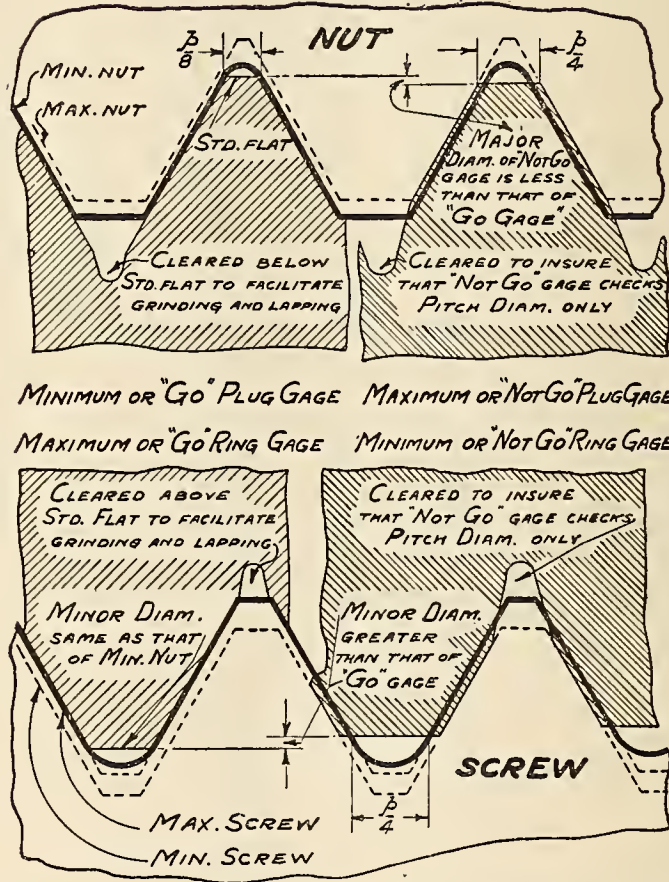 p/8
NUT
p/4
MIN. NUT
MAX. NUT
STD. FLAT
MAJOR
DIAM. OF "NOT GO
GAGE IS LESS
THAN THAT OF
"GO GAGE"
CLEARED BELOW
STD. FLAT TO FACILITATE
GRINDING AND LAPPING
CLEARED TO INSURE
THAT "NOT GO" GAGE CHECKS
PITCH DIAM. ONLY
MINIMUM OR "GO" PLUG GAGE
MAXIMUM OR "NOT GO" PLUG GAGE
MAXIMUM OR "GO" RING GAGE
MINIMUM OR "NOT GO" RING GAGE
CLEARED ABOVE
STD. FLAT TO FACILITATE
GRINDING AND LAPPING
CLEARED TO INSURE
THAT "NOT GO" GAGE CHECKS
PITCH DIAM. ONLY
MINOR DIAM.
SAME AS THAT
OF MIN. NUT
MINOR DIAM.
GREATER
THAN THAT OF
"GO" GAGE
SCREW
p/4
MAX. SCREW
MIN. SCREW